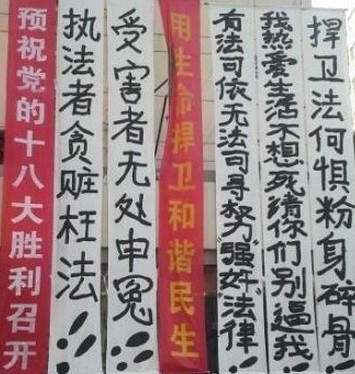 预祝党的十八大胜利召开
执法者贪赃枉法!!
受害者无处申冤!!
用生命捍卫和谐民生
有法可依无法可寻努"强奸"法律!!
我热爱生活不想死请你们别逼我!!
捍卫法何惧粉身碎骨!!